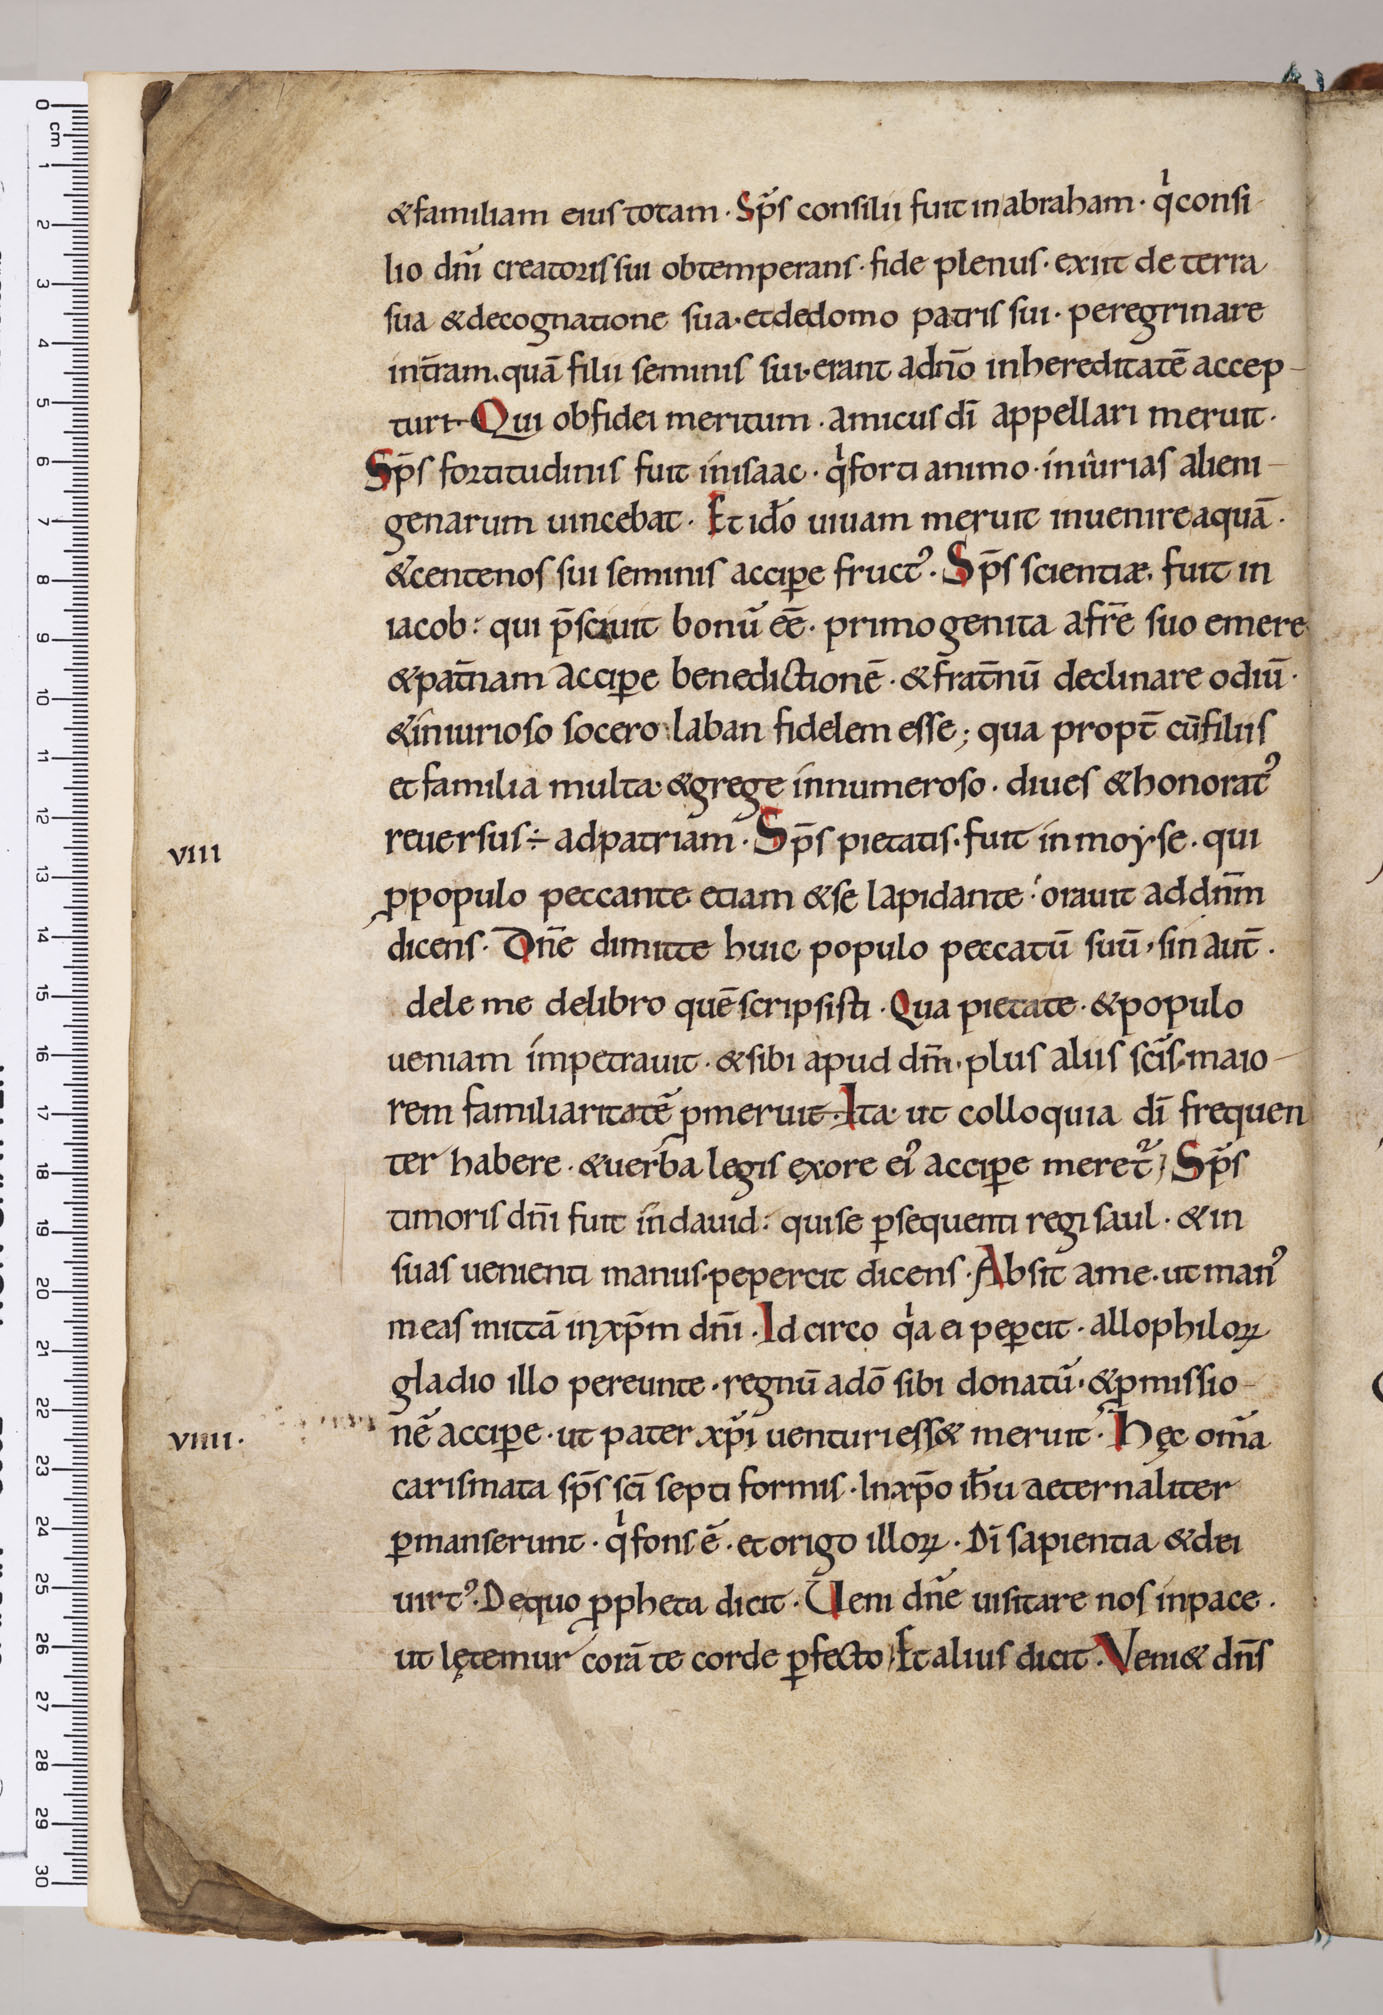 &familiam eius totam · Sp̄s consilii fuit in abraham · qi consi-
lio dn̄i creatoris sui obtemperans · fide plenus · exiit de terra
sua & decognatione sua · et dedomo patris sui · peregrinare
in t̄ram · quā filii seminis sui · erant ad n̄o in hereditatē accep-
turi · Qui ob fidei meritum · amicus dī appellari meruit ·
Sp̄s fortitudinis fuit in isaac · qi forti animo · iniurias alieni-
genarum uincebat · Et id̄o uiuam meruit inuenire aquā ·
& centenos sui seminis accip̱e fruct᾽ · Sp̄s scientiæ, fuit in
iacob : qui p̄sciuit bonū eē · primogenita a fr̄e suo emere
& pat̄nam accip̱e benedictionē · & frat̄nū declinare odiū ·
& iniurioso socero laban fidelem esse ; qua propt̄ cū filiis
et familia multa · & grege innumeroso · diues & honorat᾽
reuersus ÷ ad patriam · Sp̄s pietatis · fuit in moyse · qui
viii
ꝓ populo peccante etiam & se lapidante · orauit ad dn̄m
dicens · Dn̄e dimitte huic populo peccatū suū · sin aut̄ ·
dele me de libro quē scripsisti · Qua pietate · & populo
ueniam impetrauit · & sibi apud dm̄ · plus aliis sc̄is · maio-
rem familiaritatē ꝑmeruit · Ita · ut colloquia dī frequen
ter habere · & uerba legis ex ore ei᾽ accip̱e meret᷑ ; Sp̄s
timoris dn̄i fuit in dauid : qui se ꝑsequenti regi saul · & in
suas uenienti manus · pepercit dicens · Absit a me · ut man᾽
meas mittā in xp̄m dn̄i · Id circo qia ei peꝑcit · allophiloꝝ
gladio illo pereunte · regnū a dō sibi donatū · & ꝓmissio-
nē accip̱e · ut pater xp̄i uenturi ess& meruit · Hęc om̄a
viiii ·
carismata sp̄s sc̄i septiformis · In xp̄o ih̄u aeternaliter
ꝑmanserunt · qi fons ē · et origo illoꝝ · Dī sapientia & dei
uirt᾽ · De quo ꝓpheta dicit · Ueni dn̄e uisitare nos in pace ·
ut lętemur corā te corde ꝑfecto ; Et alius dicit · Veni& dn̄s